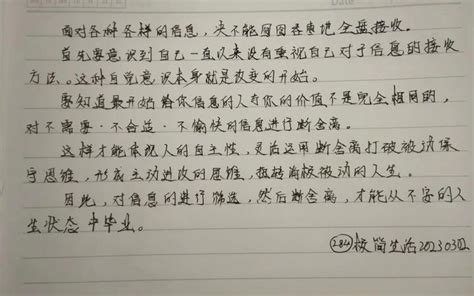 Date
面对各种各样的信息，决不能囫囵吞枣地全盘接收。
首先要意识到自己一直以来没有重视自己对于信息的接收
方法。这种自觉意识本身就是改变的开始。
要知道最开始给你信息的人与你的价值不是完全相同的，
对不需要·不合适·不愉快的信息进行断舍离。
这样才能体现人的自主性，灵活运用断舍离打破被动保
守思维，形成主动进攻的思维，扭转消极被动的人生。
因此，对信息的进行筛选，然后断舍离，才能从不幸的人
生状态中毕业。
284 极简生活202303